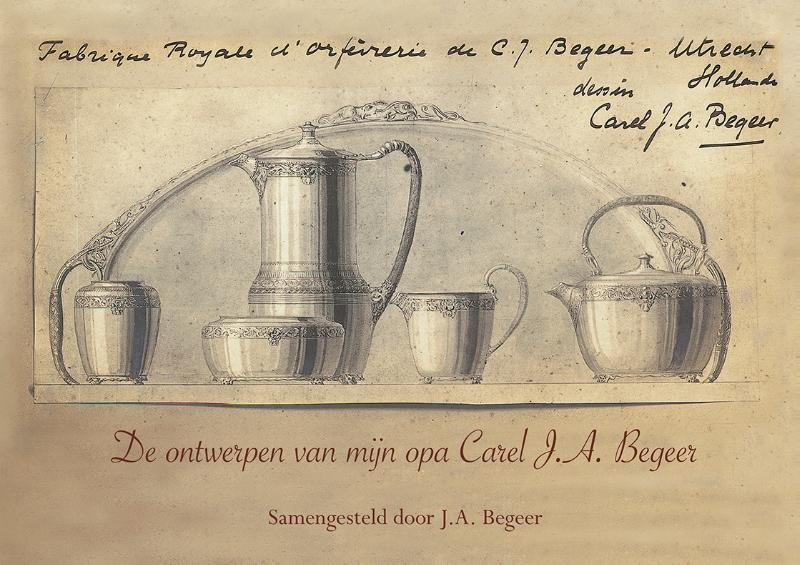 Fabrique Royale d'orfèvrerie de C.J. Begeer - Utrecht
Hollande
dessin
Carel J.A. Begeer
De ontwerpen van mijn opa Carel J.A. Begeer
Samengesteld door J.A. Begeer